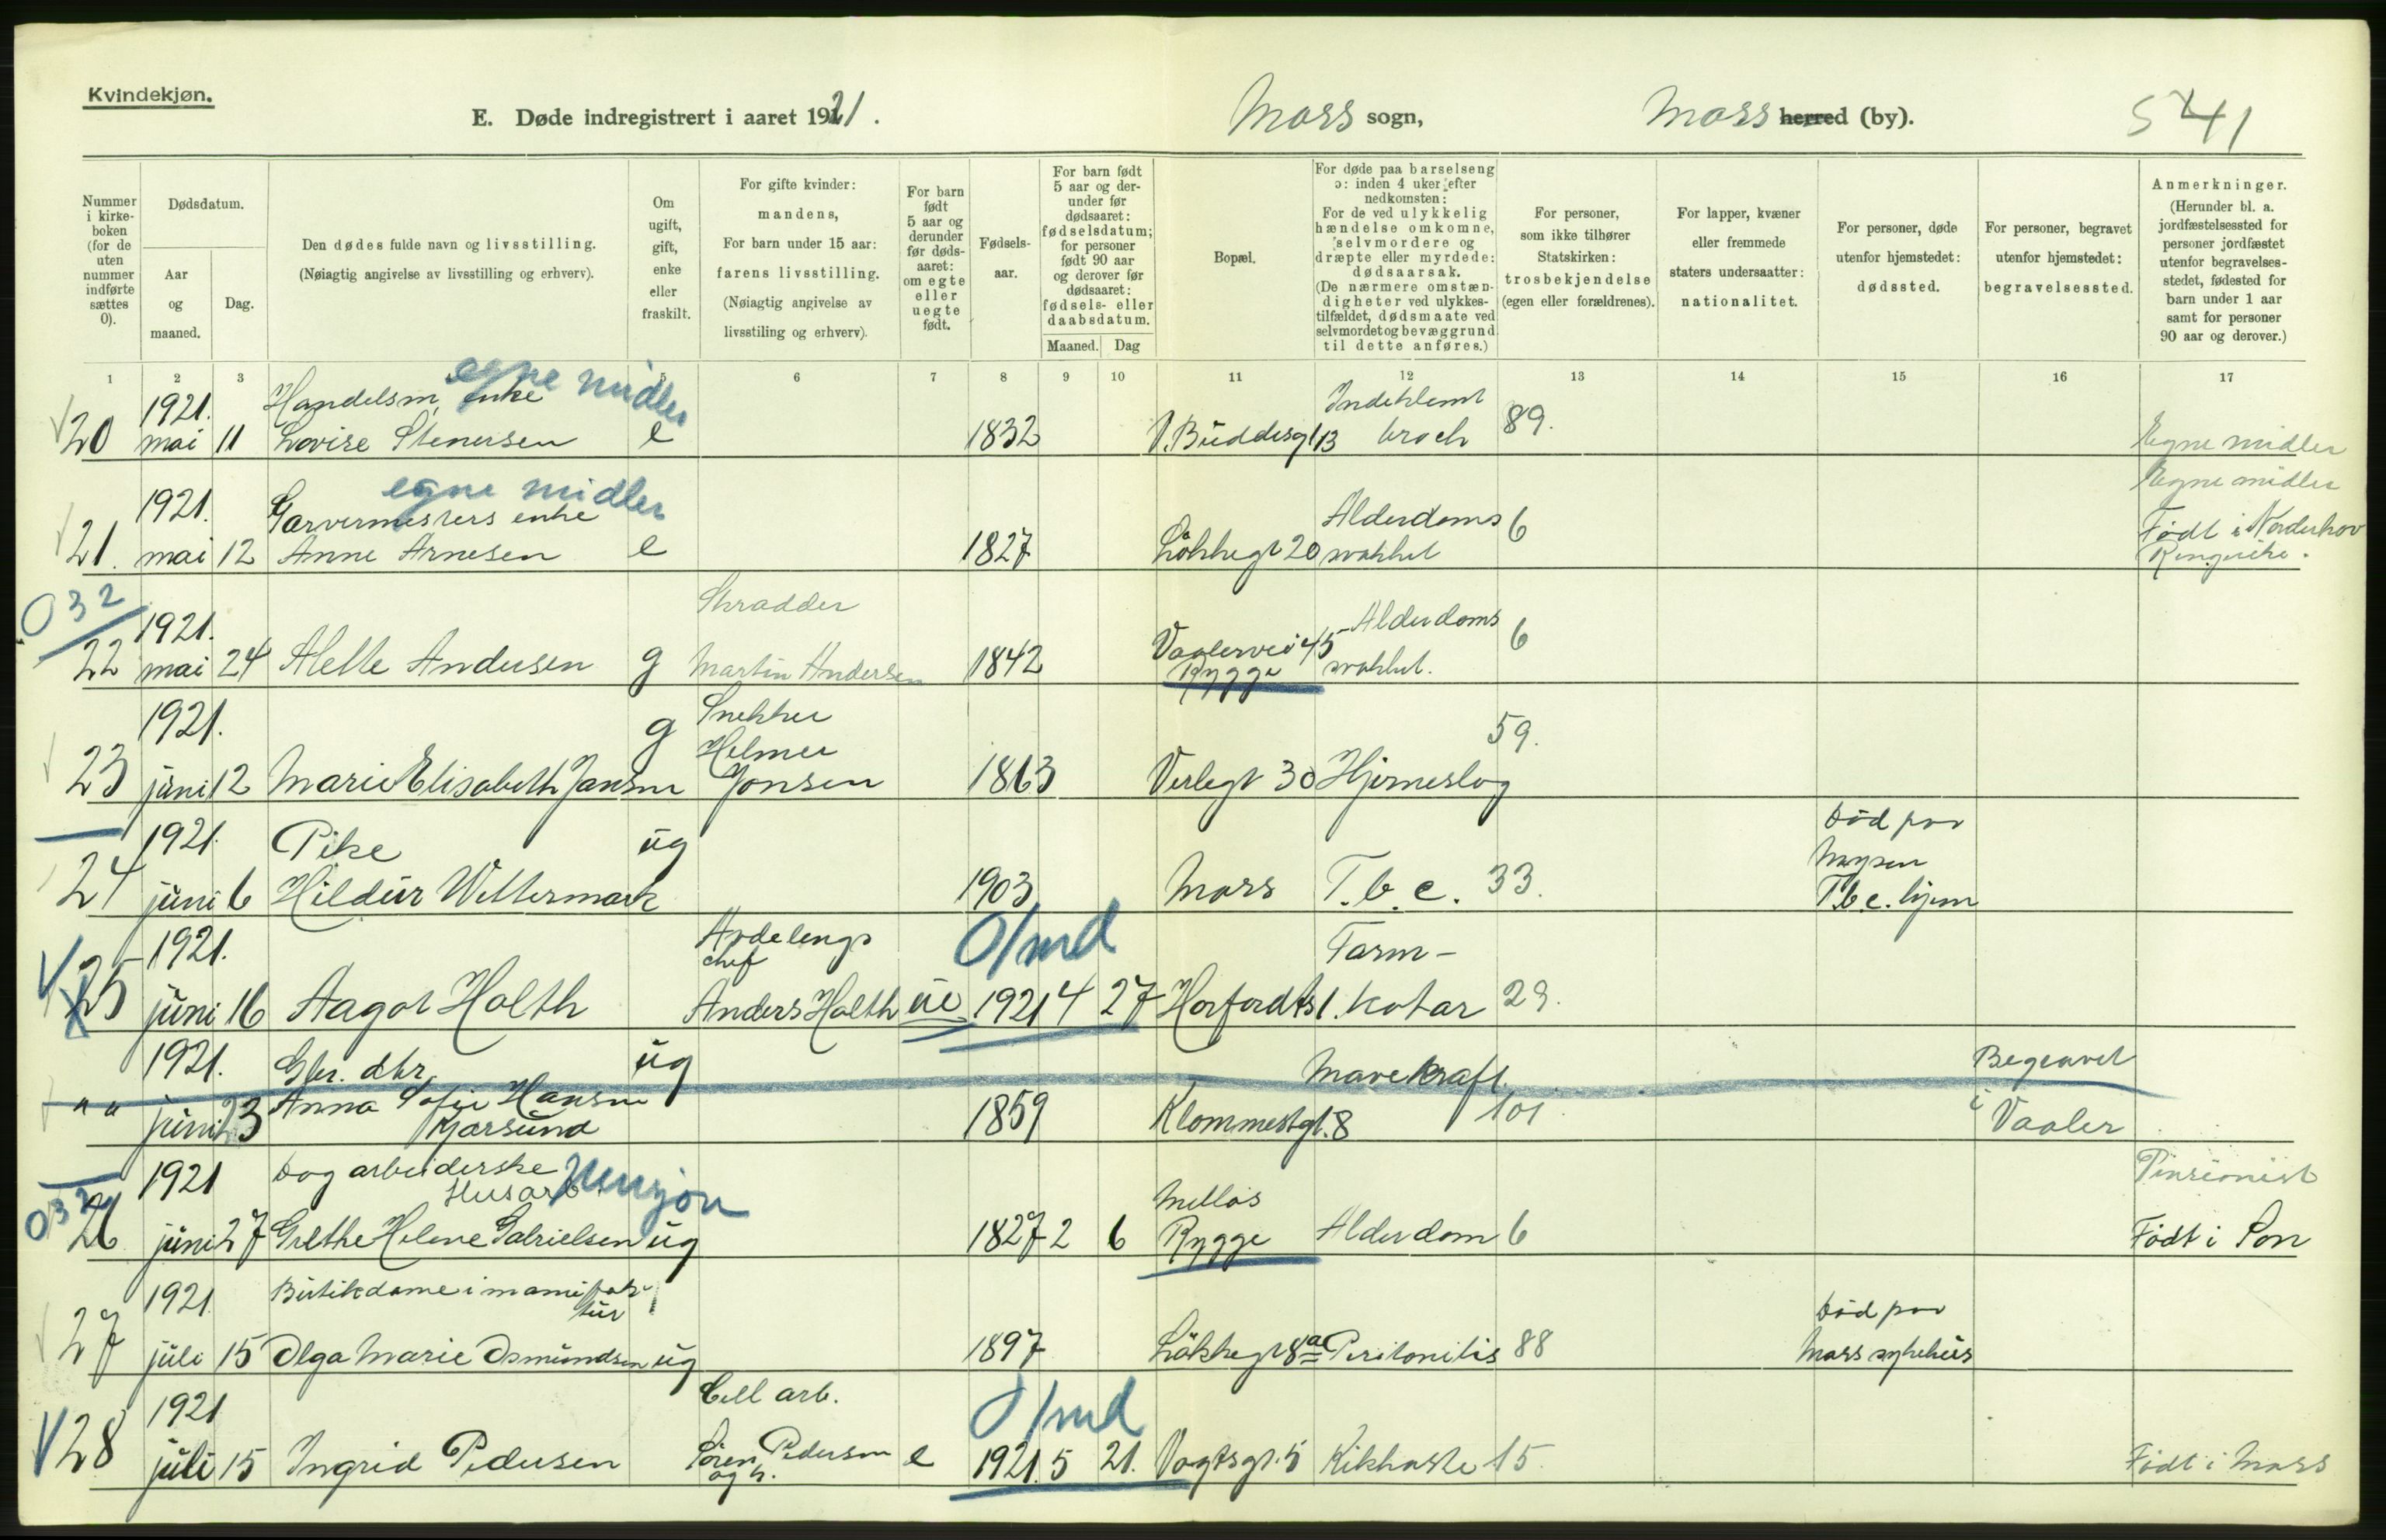 Kvindekjøn.
E. Døde indregistrert i aaret 1921.
Moss sogn,
Moss herred (by).
541
Nummer i kirke-boken (for de uten nummer indførte sættes 0).
Dødsdatum.
Aar og maaned.
Dag.
Den dødes fulde navn og livsstilling.
(Nøiagtig angivelse av livsstilling og erhverv).
Om ugift, gift, enke eller fraskilt.
For gifte kvinder: mandens,
For barn under 15 aar: farens livsstilling.
(Nøiagtig angivelse av livsstiling og erhverv).
For barn født 5 aar og derunder før døds-aaret: om egte eller uegte født.
Fødsels-aar.
For barn født 5 aar og der-under før dødsaaret: fødselsdatum; for personer født 90 aar og derover før dødsaaret: fødsels- eller daabsdatum.
Maaned.
Dag
Bopæl.
For døde paa barselseng ɔ: inden 4 uker efter nedkomsten:
For de ved ulykkelig hændelse omkomne, selvmordere og dræpte eller myrdede: dødsaarsak.
(De nærmere omstæn-digheter ved ulykkes-tilfældet, dødsmaate ved selvmordet og bevæggrund til dette anføres.)
For personer, som ikke tilhører Statskirken: trosbekjendelse (egen eller forældrenes).
For lapper, kvæner eller fremmede staters undersaatter: nationalitet.
For personer, døde utenfor hjemstedet: dødssted.
For personer, begravet utenfor hjemstedet: begravelsessted.
Anmerkninger.
(Herunder bl. a. jordfæstelsessted for personer jordfæstet utenfor begravelses-stedet, fødested for barn under 1 aar samt for personer 90 aar og derover.)
1 2 3 5 6 7 8 9 10 11 12 13 14 15 16 17
egne midler
1921. Handelsm. enke Indeklemt
20 mai 11 Lovise Stenersen e 1832 V. Buddesgt 13 broch 89. Egne midler
egne midler Egne midler
1921. Garvermesters enke Alderdoms 6 Født i Norderhov
21. mai 12 Anne Arnesen e 1827 Løkkegt 20 svakhet Ringerike.
032
1921. Skrædder Alderdoms
22 mai 24 Alette Andersen g Martin Andersen 1842 Vaalervei 45 svakhet. 6
Rygge
1921. g Snekker
Helmer 59.
23 juni 12 Marie Elisabeth Jansen Jonsen 1863 Verlegt 30 Hjerneslag
1921. Pike ug Død paa
Mysen
24 juni 6 Hildur Wettermark 1903 Moss T.b.c. 33. T.b.c. hjem
1921. Avdelings chef 0/md Tarm-
25 juni 16 Aagot Holth Anders Holth ue 1921 4 27 1. katar 29.
1921. Gbr. dtr. ug Mavekræft. Begravet
" " juni 23 Anna Sofie Hansen 1859 Klommestgt. 8 101 i Vaaler
1921 Dagarbeiderske Pensjon Pensionist
Husarb. Melløs
032
26 juni 27 Grethe Helene Gabrielsen ug 1827 2 6 Rygge Alderdom 6 Født i Son
1921 Butikdame i manufak-
tur Død paa
27 juli 15 Olga Marie Osmundsen ug 1897 Løkkegt 8a Peritonitis 88 Moss sykehus
1921 Cell arb. 0/md
28 juli 15 Ingrid Pedersen Søren Pedersen e 1921. 5 21. Vogtsgt. 5 Kikhoste 15. Født i Moss
og h.